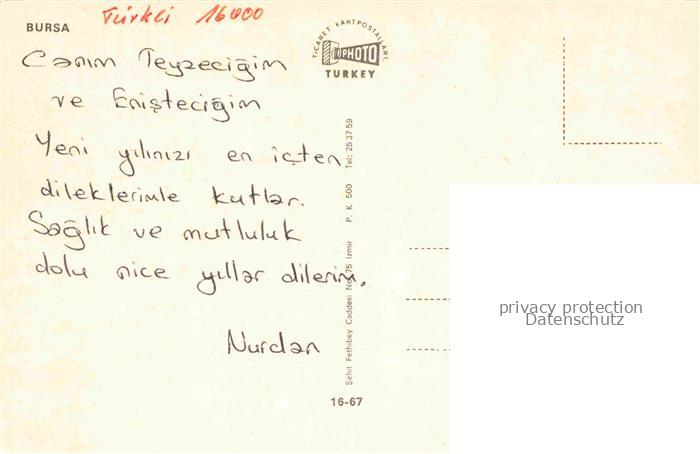 BURSA
Türkei 16000
Canım Teyzeciğim
ve Enişteciğim
Yeni yılınızı en içten
dileklerimle kutlar.
Sağlık ve mutluluk
dolu nice yıllar dilerim.
Nurdan
TİCARET KARTPOSTALLARI,
PHOTO
TURKEY
Şehit Fethibey Caddesi No: 75 İzmir P. K. 500 Tel: 253759
16-67
privacy protection
Datenschutz